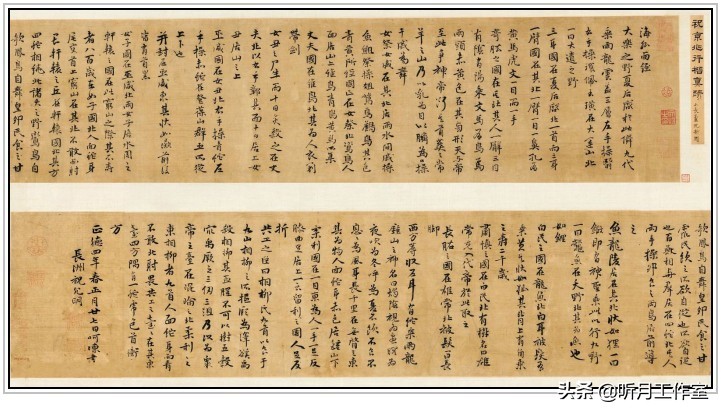 祝京兆行楷真蹟
海外西經
大樂之野夏后啟於此儛九代
乘兩龍雲蓋三層左手操翳
右手操環佩玉璜在大運山北
一曰大遺之野
三身國在夏后啟北一首而三身
一臂國在其北一臂一目一鼻孔有
黃馬虎文一目而一手
奇肱之國在其北其人一臂三目
有陰有陽乘文馬有鳥焉
兩頭赤黃色在其旁形天與帝
至此爭神帝斷其首葬之常
羊之山乃以乳為目以臍為口操
干戚以舞
女祭女戚在其北居兩水間戚操
魚䱉祭操俎鶬鳥鶬鳥其色
青黃所經國亡在女祭北鶬鳥人
面居山上一曰維鳥青鳥黃鳥所集
丈夫國在維鳥北其為人衣冠
帶劍
女丑之尸生而十日炙殺之在丈
夫北以右手鄣其面十日居上女
丑居山之上
巫咸國在女丑北右手操青蛇左
手操赤蛇在登葆山群巫所從
上下也
并封在巫咸東其狀如彘前後
皆有首黑
女子國在巫咸北兩女子居水周之
軒轅之國在此窮山之際其不壽
者八百歲在女子國北人面蛇身
尾交首上窮山在其北不敢西射
畏軒轅之丘在軒轅國北其方
四蛇相繞此諸夭之野鸞鳥自
歌鳳鳥自舞皇卵民食之甘
歌鳳鳥自舞皇卵民食之甘
露民飲之所欲自從也
也百獸相與群居在四蛇北其人
兩手操卵食之兩鳥居前導
之
龍魚陵居在其北狀如貍一曰
鰕即有神聖乘此以行九野
一曰鱉魚在夭野北其為魚也
如鯉
白民之國在龍魚北白身被髮有
乘黃其狀如狐其背上有角乘
之壽二千歲
肅慎之國在白民北有樹名曰雄
常先入代帝於此取之
長股之國在雄常北被髮一曰長
腳
西方蓐收左耳有蛇乘兩龍
鍾山之神名曰燭陰視為晝瞑為
夜吹為冬呼為夏不飲不食不
息息為風身長千里在無𦜹之東
其為物人面蛇身赤色居鍾山下
柔利國在一目東為人一手一足反
膝曲足居上一云留利之國人足反
折
共工之臣曰相柳氏九首以食于
九山相柳之所抵厥為澤谿禹
殺相柳其血腥不可以樹五穀
種禹厥之三仞三沮乃以為眾
帝之臺在崑崙之北柔利之
東相柳者九首人面蛇身而青
不敢北射畏共工之臺臺在其東
臺四方隅有一蛇虎色首衝南
方
正德四年春正月廿七日呵凍書
長洲祝允明
头条@听月工作室